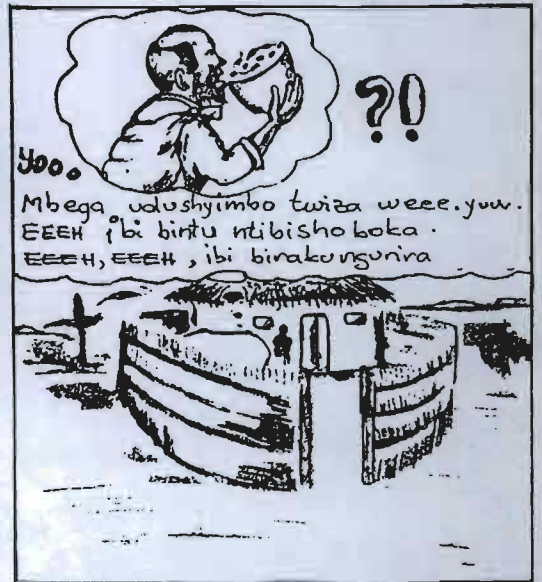 ?!
Yooo
Mbega udushyimbo twiza weee.yuw.
EEEH ibi bintu ntibishoboka.
EEEH, EEEH, ibi birakungurira